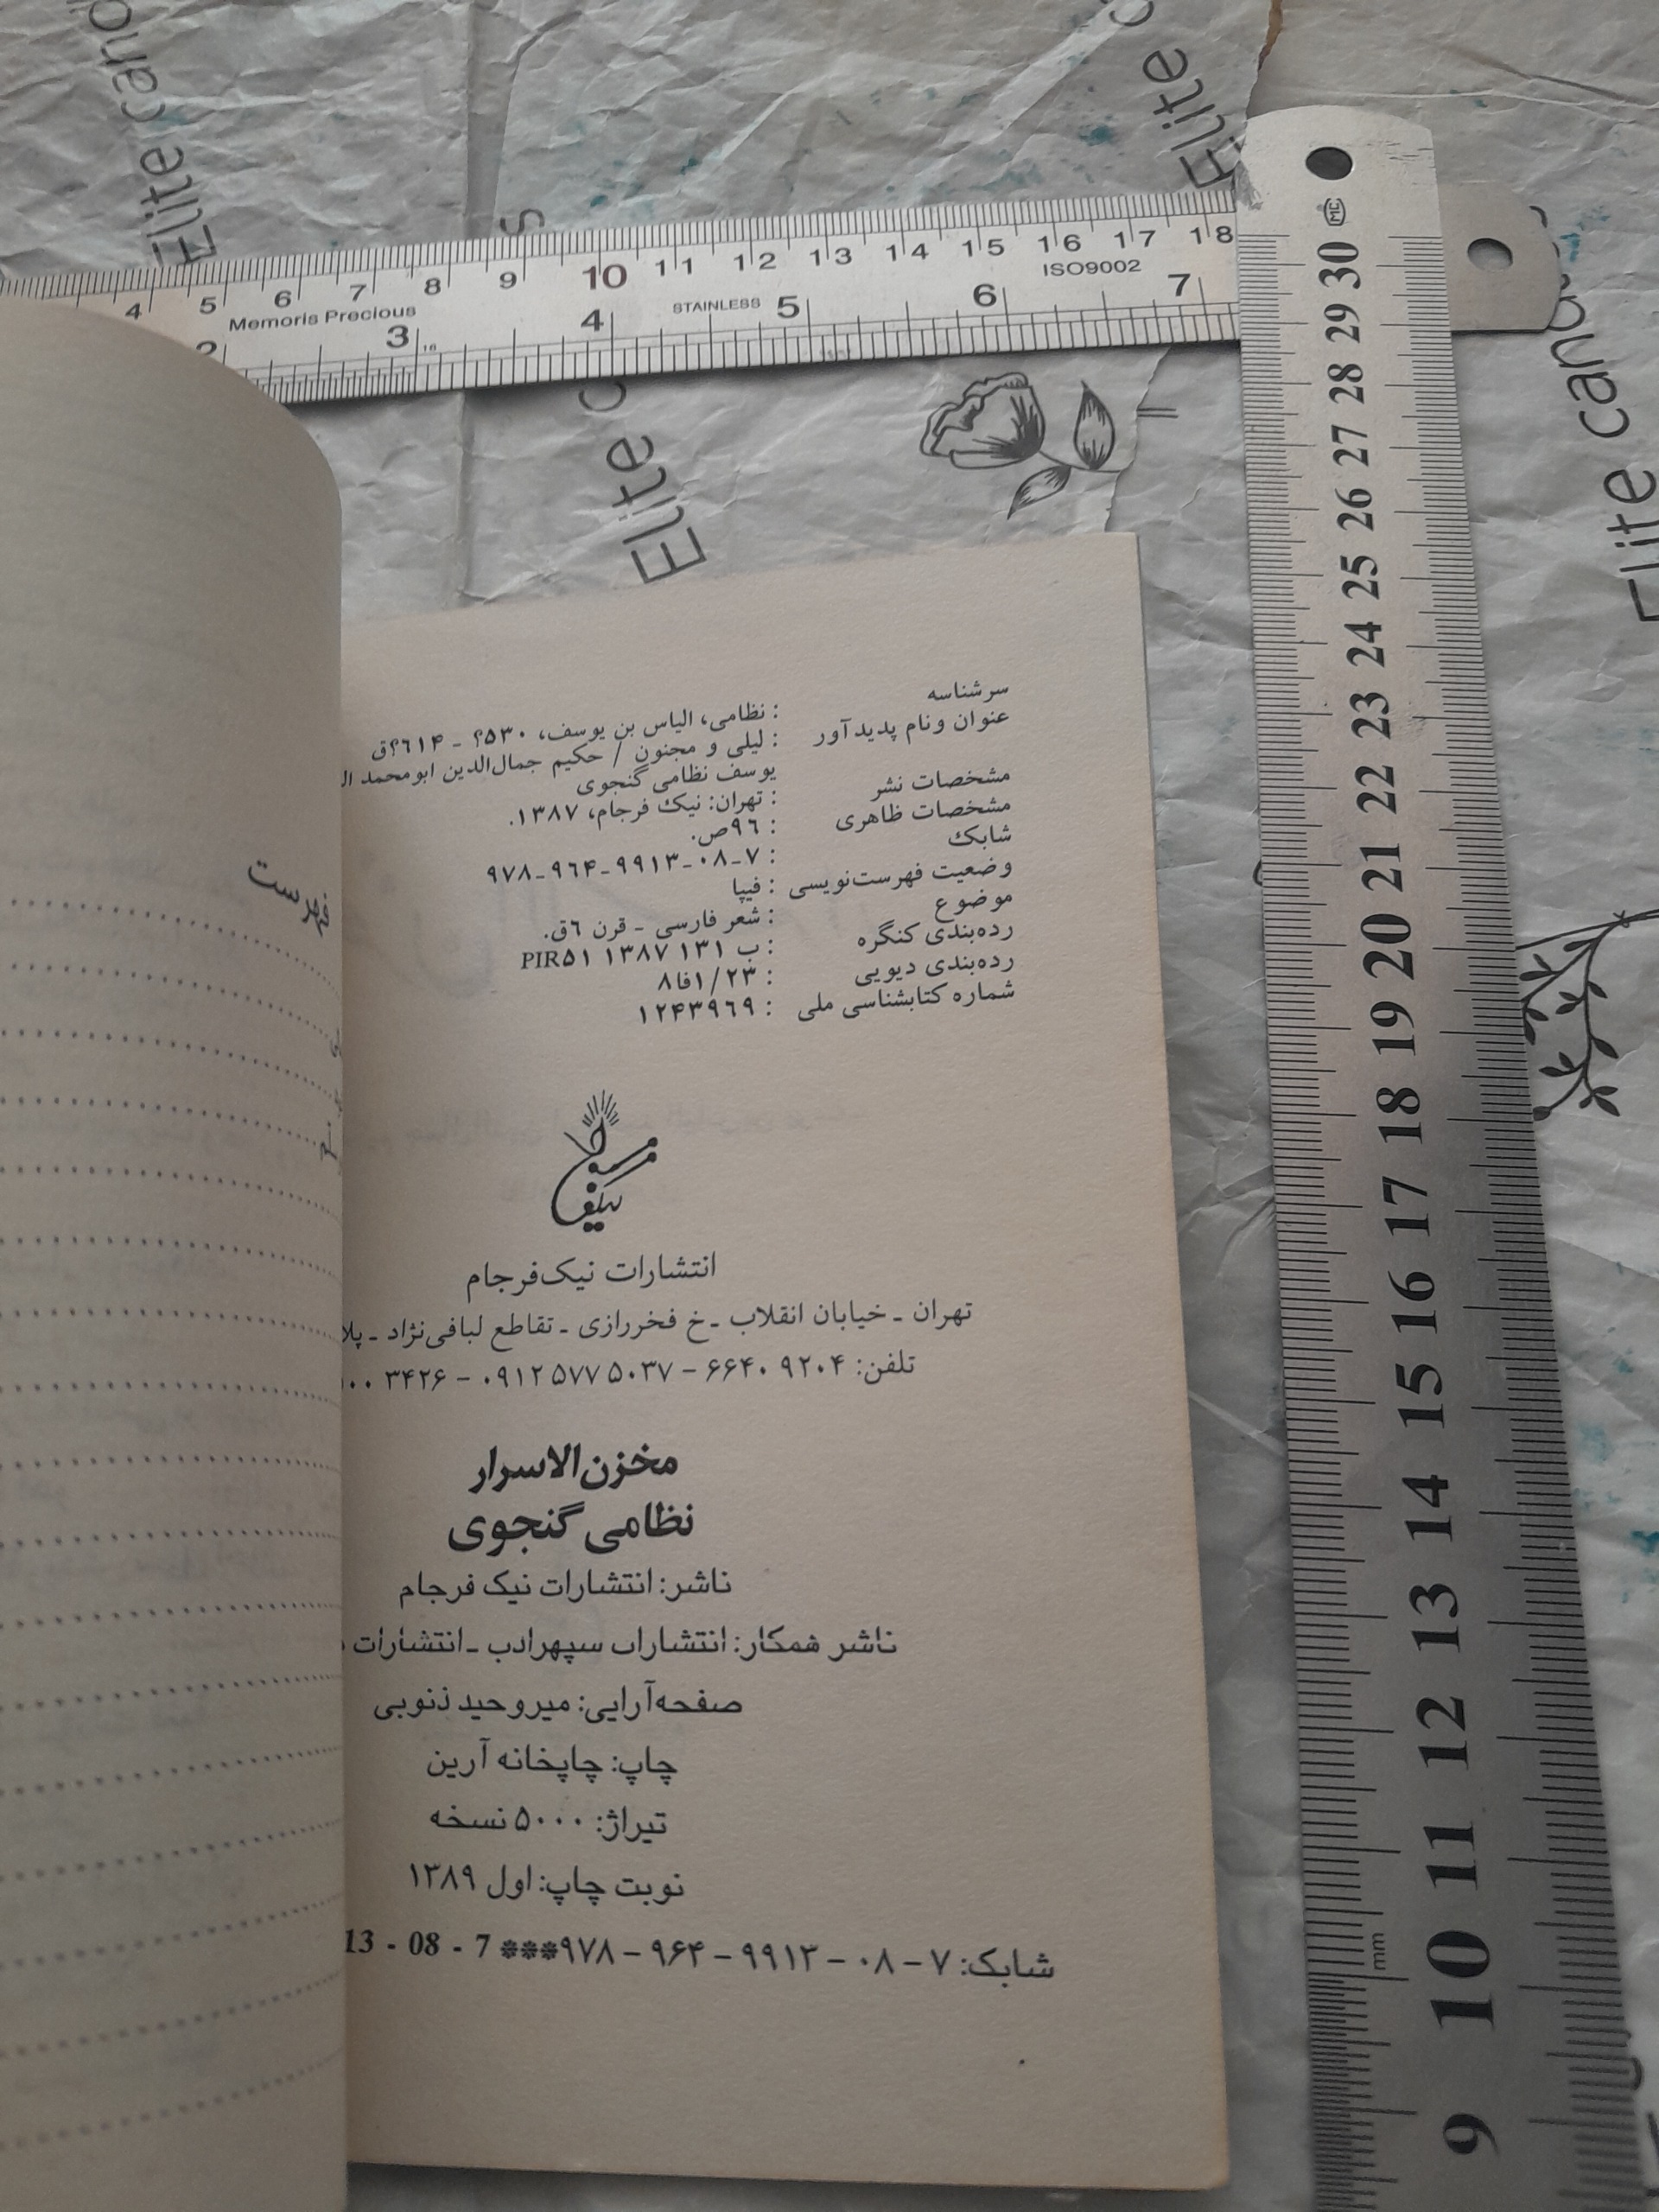 سرشناسه : نظامی، الیاس بن یوسف، ۵۳۰؟ - ۶۱۴؟ق
عنوان ونام پدیدآور : لیلی و مجنون / حکیم جمال‌الدین ابومحمد
یوسف نظامی گنجوی
مشخصات نشر : تهران: نیک فرجام، ۱۳۸۷.
مشخصات ظاهری : ۹۶ص.
شابک : ۹۷۸-۹۶۴-۹۹۱۳-۰۸-۷
وضعیت فهرست‌نویسی : فیپا
موضوع : شعر فارسی - قرن ۶ق.
رده‌بندی کنگره : PIR۵۱ ۱۳۸۷ ۱۳۱ ب
رده‌بندی دیویی : ۸فا۱/۲۳
شماره کتابشناسی ملی : ۱۲۴۳۹۶۹
انتشارات نیک‌فرجام
تهران - خیابان انقلاب - خ فخررازی - تقاطع لبافی‌نژاد -
تلفن: ۶۶۴۰ ۹۲۰۴ - ۰۹۱۲ ۵۷۷ ۵۰۳۷ - ۳۴۲۶
مخزن‌الاسرار
نظامی گنجوی
ناشر: انتشارات نیک فرجام
ناشر همکار: انتشارات سپهرادب - انتشارات
صفحه‌آرایی: میروحید ذنوبی
چاپ: چاپخانه آرین
تیراژ: ۵۰۰۰ نسخه
نوبت چاپ: اول ۱۳۸۹
شابک: ۷ - ۰۸ - ۹۹۱۳ - ۹۶۴ - ۹۷۸***13 - 08 - 7
فهرست
4 5 6 7 8 9 10 11 12 13 14 15 16 17 18
Memoris Precious STAINLESS ISO9002
2 3 4 5 6 7
16
30 29 28 27 26 25 24 23 22 21 20 19 18 17 16 15 14 13 12 11 10 9
MC
mm
Elite cano
Elite
Elite
Elite